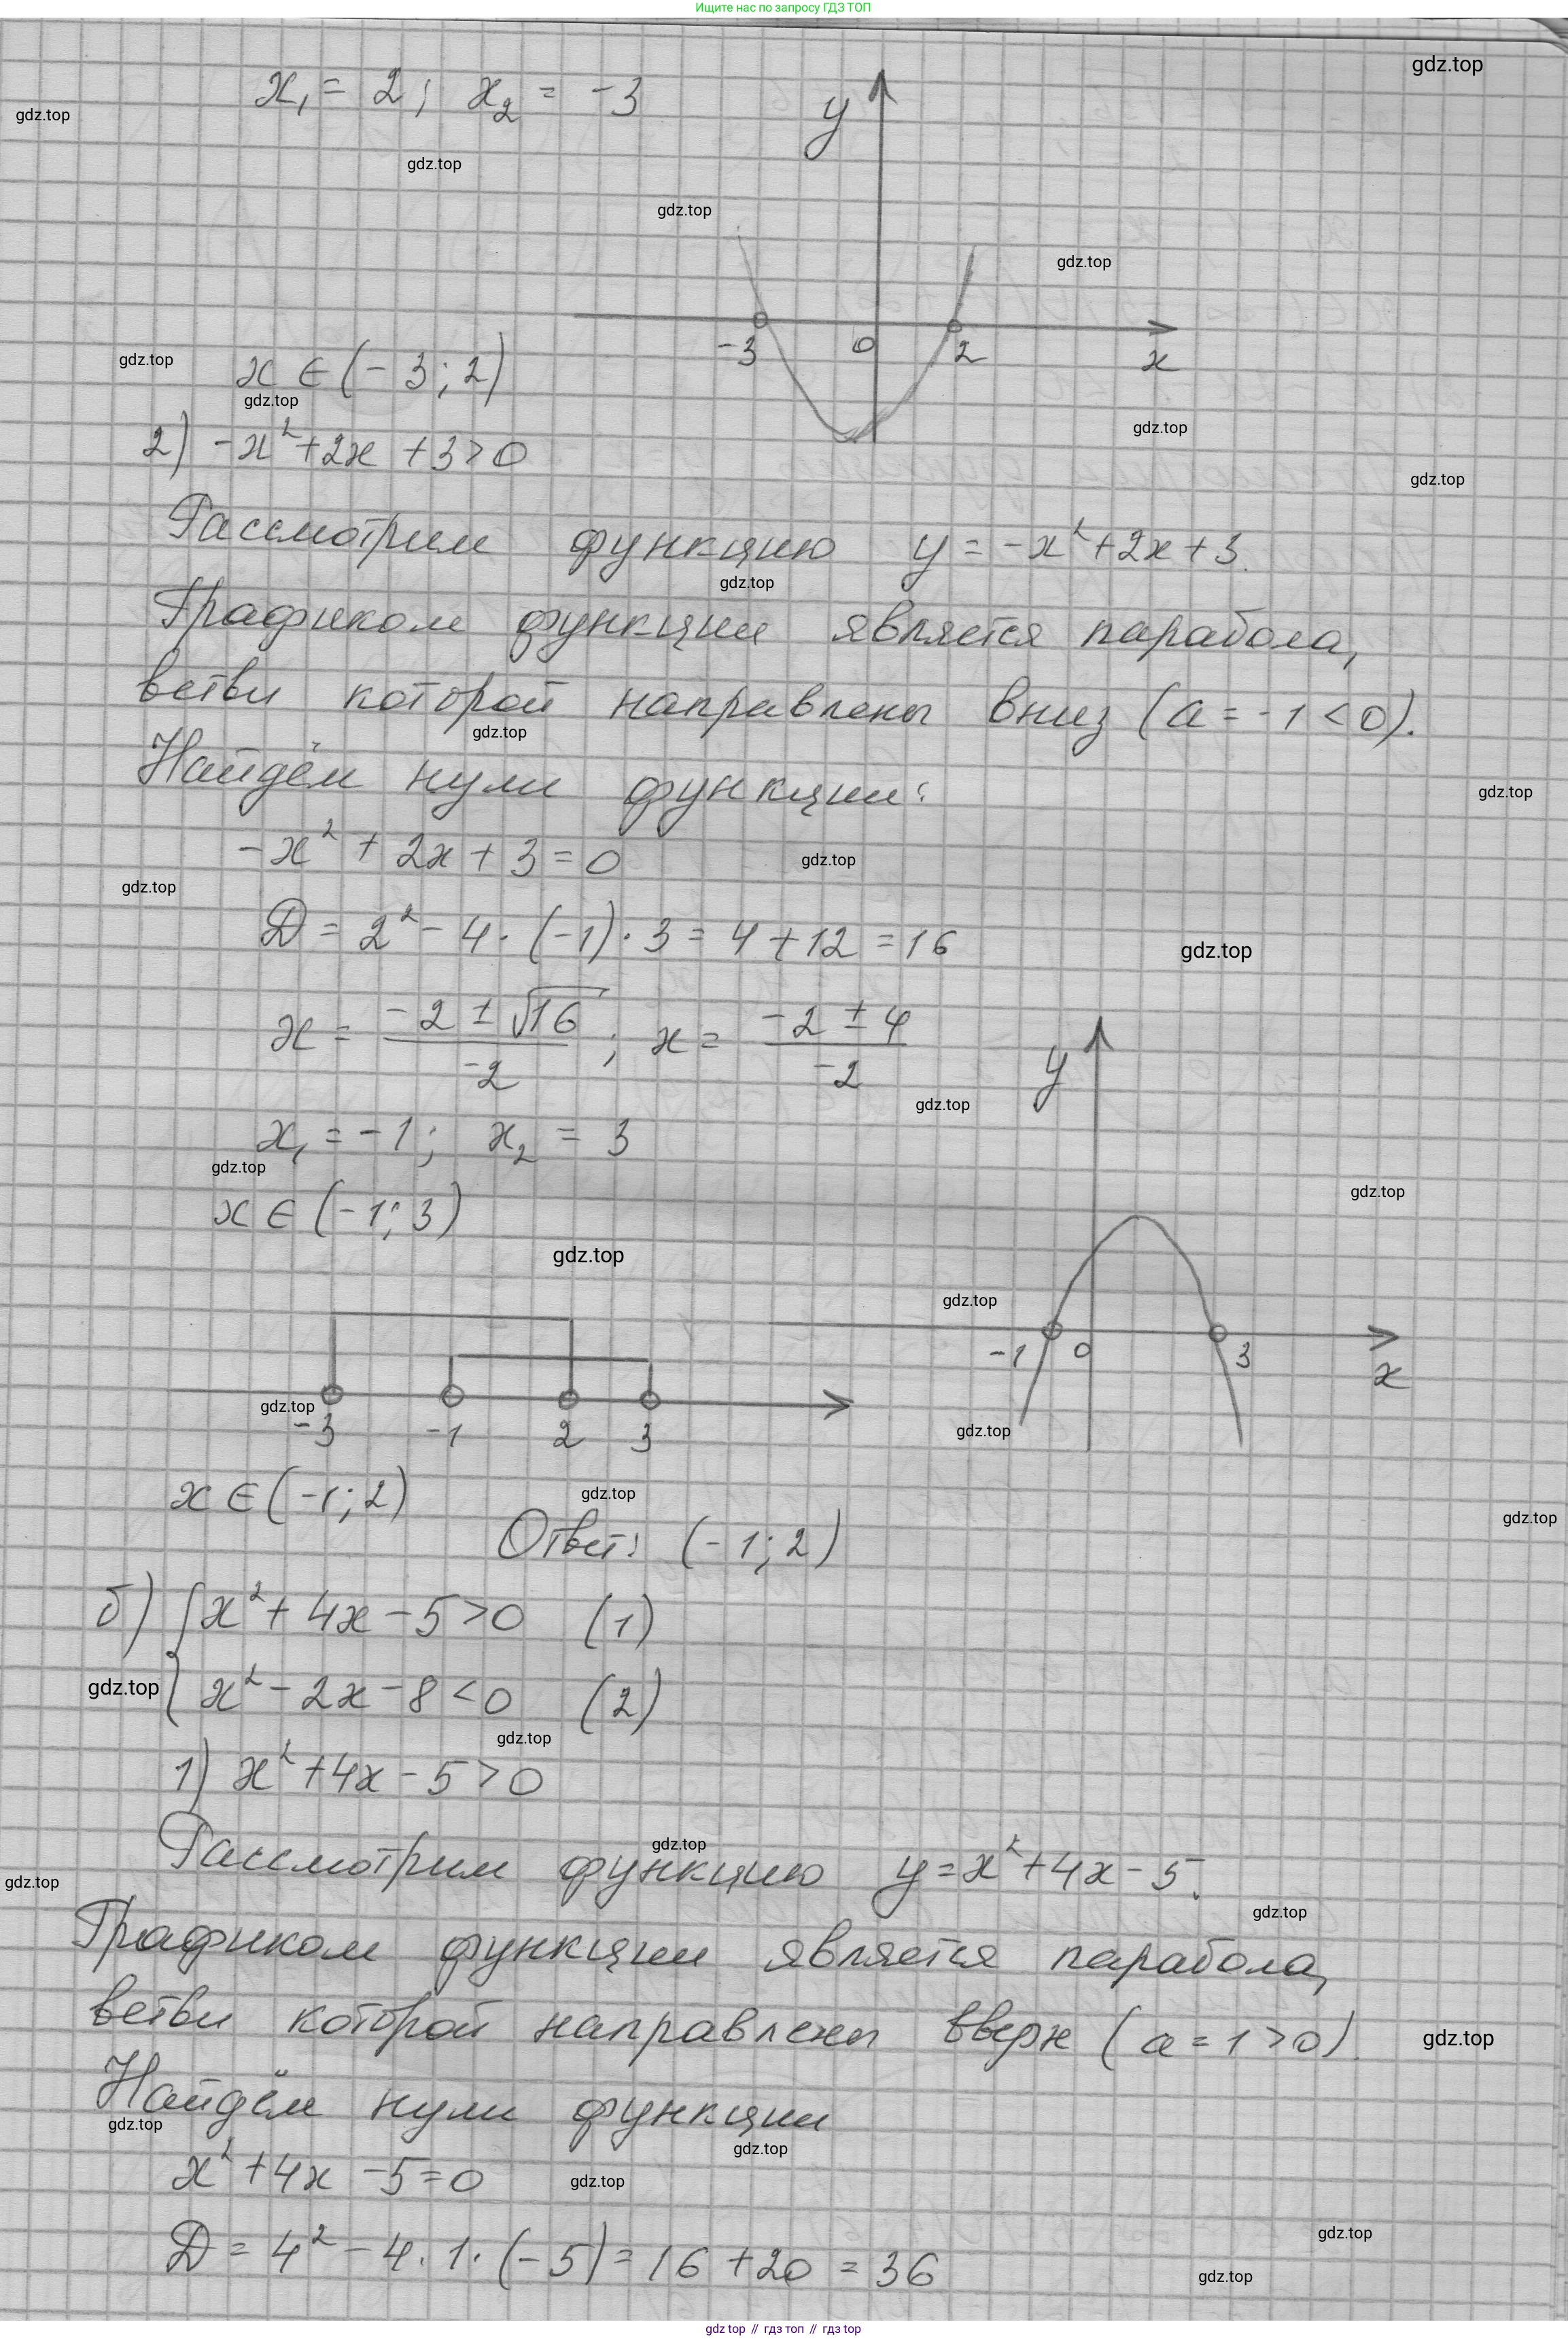 Ищите нас по запросу ГДЗ ТОП
gdz.top
x₁ = 2; x₂ = -3
y
gdz.top
gdz.top
gdz.top
gdz.top
-3 0 2 x
gdz.top
x ∈ (-3; 2)
gdz.top
gdz.top
2) -x² + 2x + 3 > 0
gdz.top
Рассмотрим функцию y = -x² + 2x + 3.
gdz.top
Графиком функции является парабола,
ветви которой направлены вниз (a = -1 < 0).
gdz.top
Найдём нули функции:
gdz.top
-x² + 2x + 3 = 0
gdz.top
gdz.top
D = 2² - 4 · (-1) · 3 = 4 + 12 = 16
gdz.top
x = (-2 ± √16)/(-2); x = (-2 ± 4)/(-2)
y
gdz.top
x₁ = -1; x₂ = 3
gdz.top
gdz.top
x ∈ (-1; 3)
gdz.top
gdz.top
-1 0 3 x
gdz.top
-3 -1 2 3
gdz.top
x ∈ (-1; 2)
gdz.top
gdz.top
Ответ: (-1; 2)
б) { x² + 4x - 5 > 0 (1)
gdz.top
{ x² - 2x - 8 < 0 (2)
gdz.top
1) x² + 4x - 5 > 0
gdz.top
Рассмотрим функцию y = x² + 4x - 5.
gdz.top
gdz.top
Графиком функции является парабола,
ветви которой направлены вверх (a = 1 > 0).
gdz.top
Найдём нули функции
gdz.top
gdz.top
x² + 4x - 5 = 0
gdz.top
gdz.top
D = 4² - 4 · 1 · (-5) = 16 + 20 = 36
gdz.top
gdz top // гдз топ // гдз top